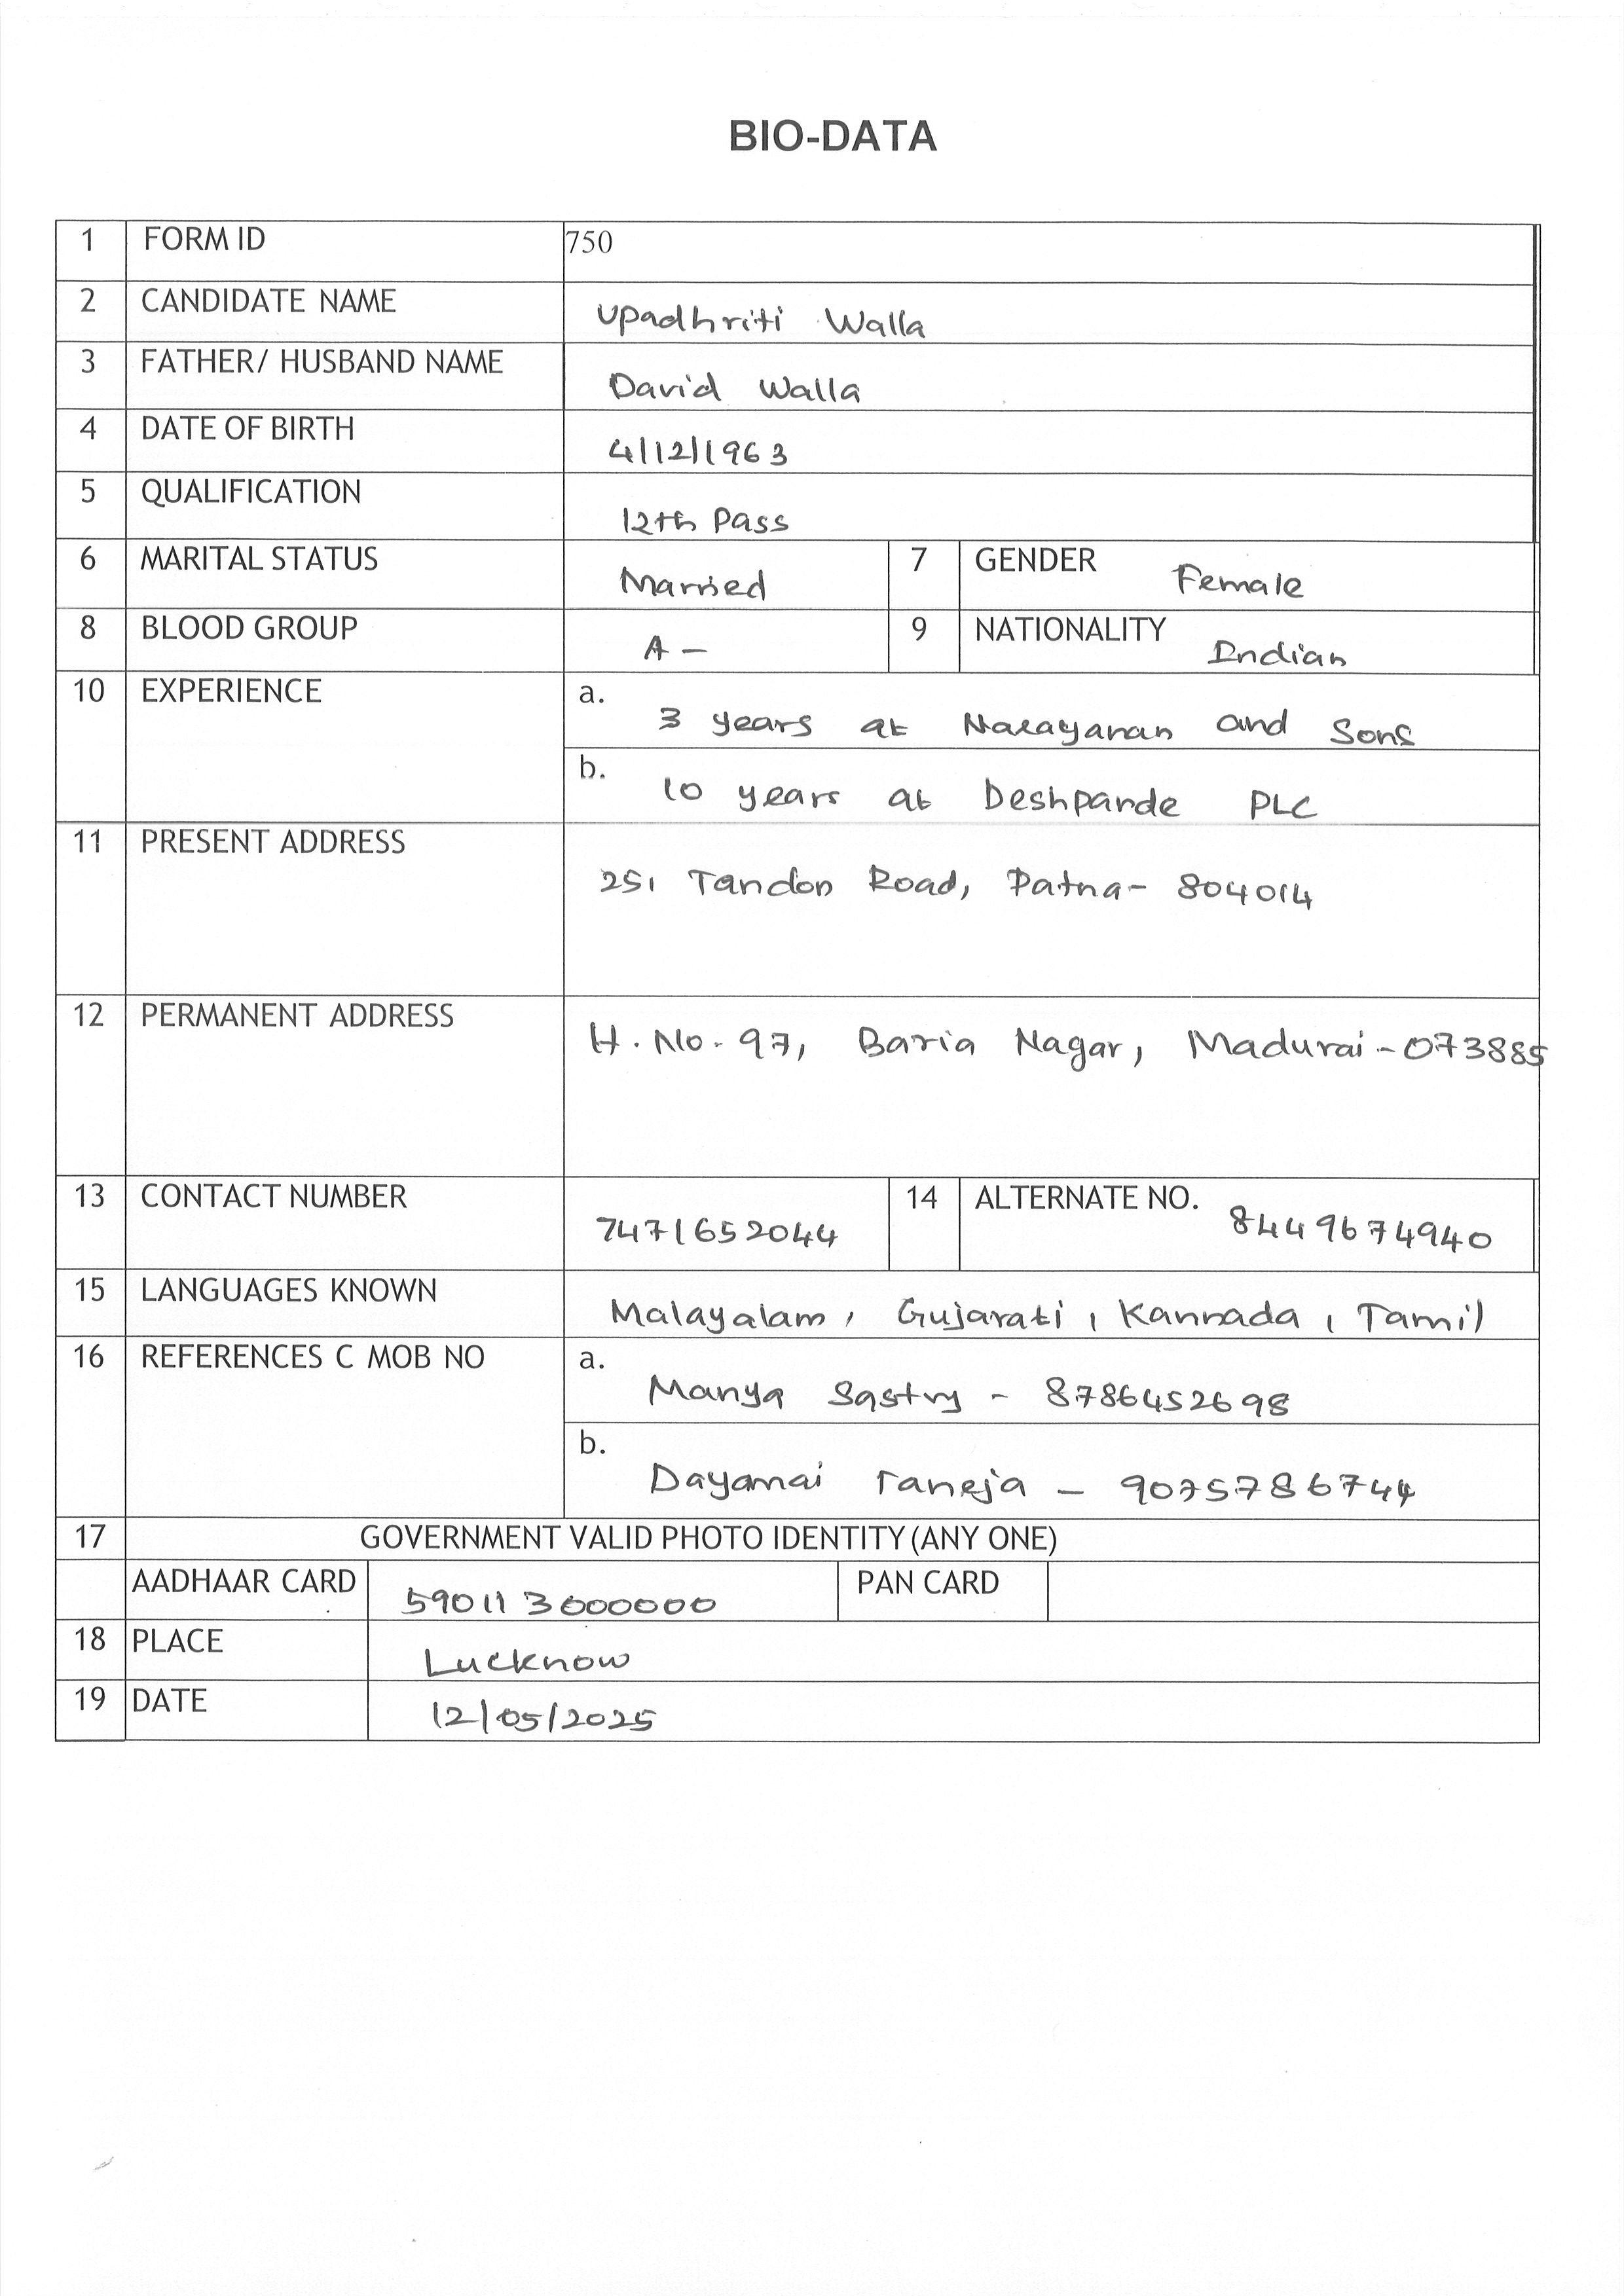 BIO-DATA
1 FORM ID 750
2 CANDIDATE NAME Upadhriti Walla
3 FATHER/ HUSBAND NAME David Walla
4 DATE OF BIRTH 4/12/1963
5 QUALIFICATION 12th Pass
6 MARITAL STATUS Married 7 GENDER Female
8 BLOOD GROUP A- 9 NATIONALITY Indian
10 EXPERIENCE a. 3 years at Narayanan and Sons
b. 10 years at Deshpande PLC
11 PRESENT ADDRESS 251 Tandon Road, Patna- 804014
12 PERMANENT ADDRESS H. No. 97, Baria Nagar, Madurai - 073885
13 CONTACT NUMBER 7471652044 14 ALTERNATE NO. 8449674940
15 LANGUAGES KNOWN Malayalam, Gujarati, Kannada, Tamil
16 REFERENCES C MOB NO a. Manya Sastry - 8786452698
b. Dayamai Taneja - 9075786744
17 GOVERNMENT VALID PHOTO IDENTITY (ANY ONE)
AADHAAR CARD 590113000000 PAN CARD
18 PLACE Lucknow
19 DATE 12/05/2025